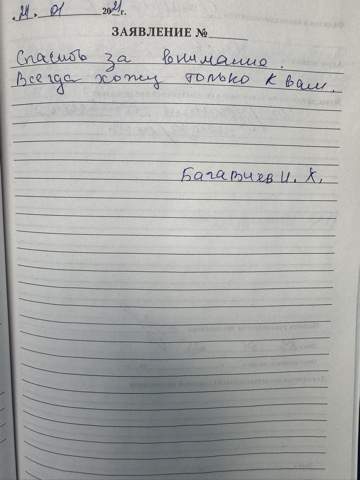 21. 01 2021г.
ЗАЯВЛЕНИЕ №
Спасибо за внимание.
Всегда хожу только к вам.
Багавиев И. Х.